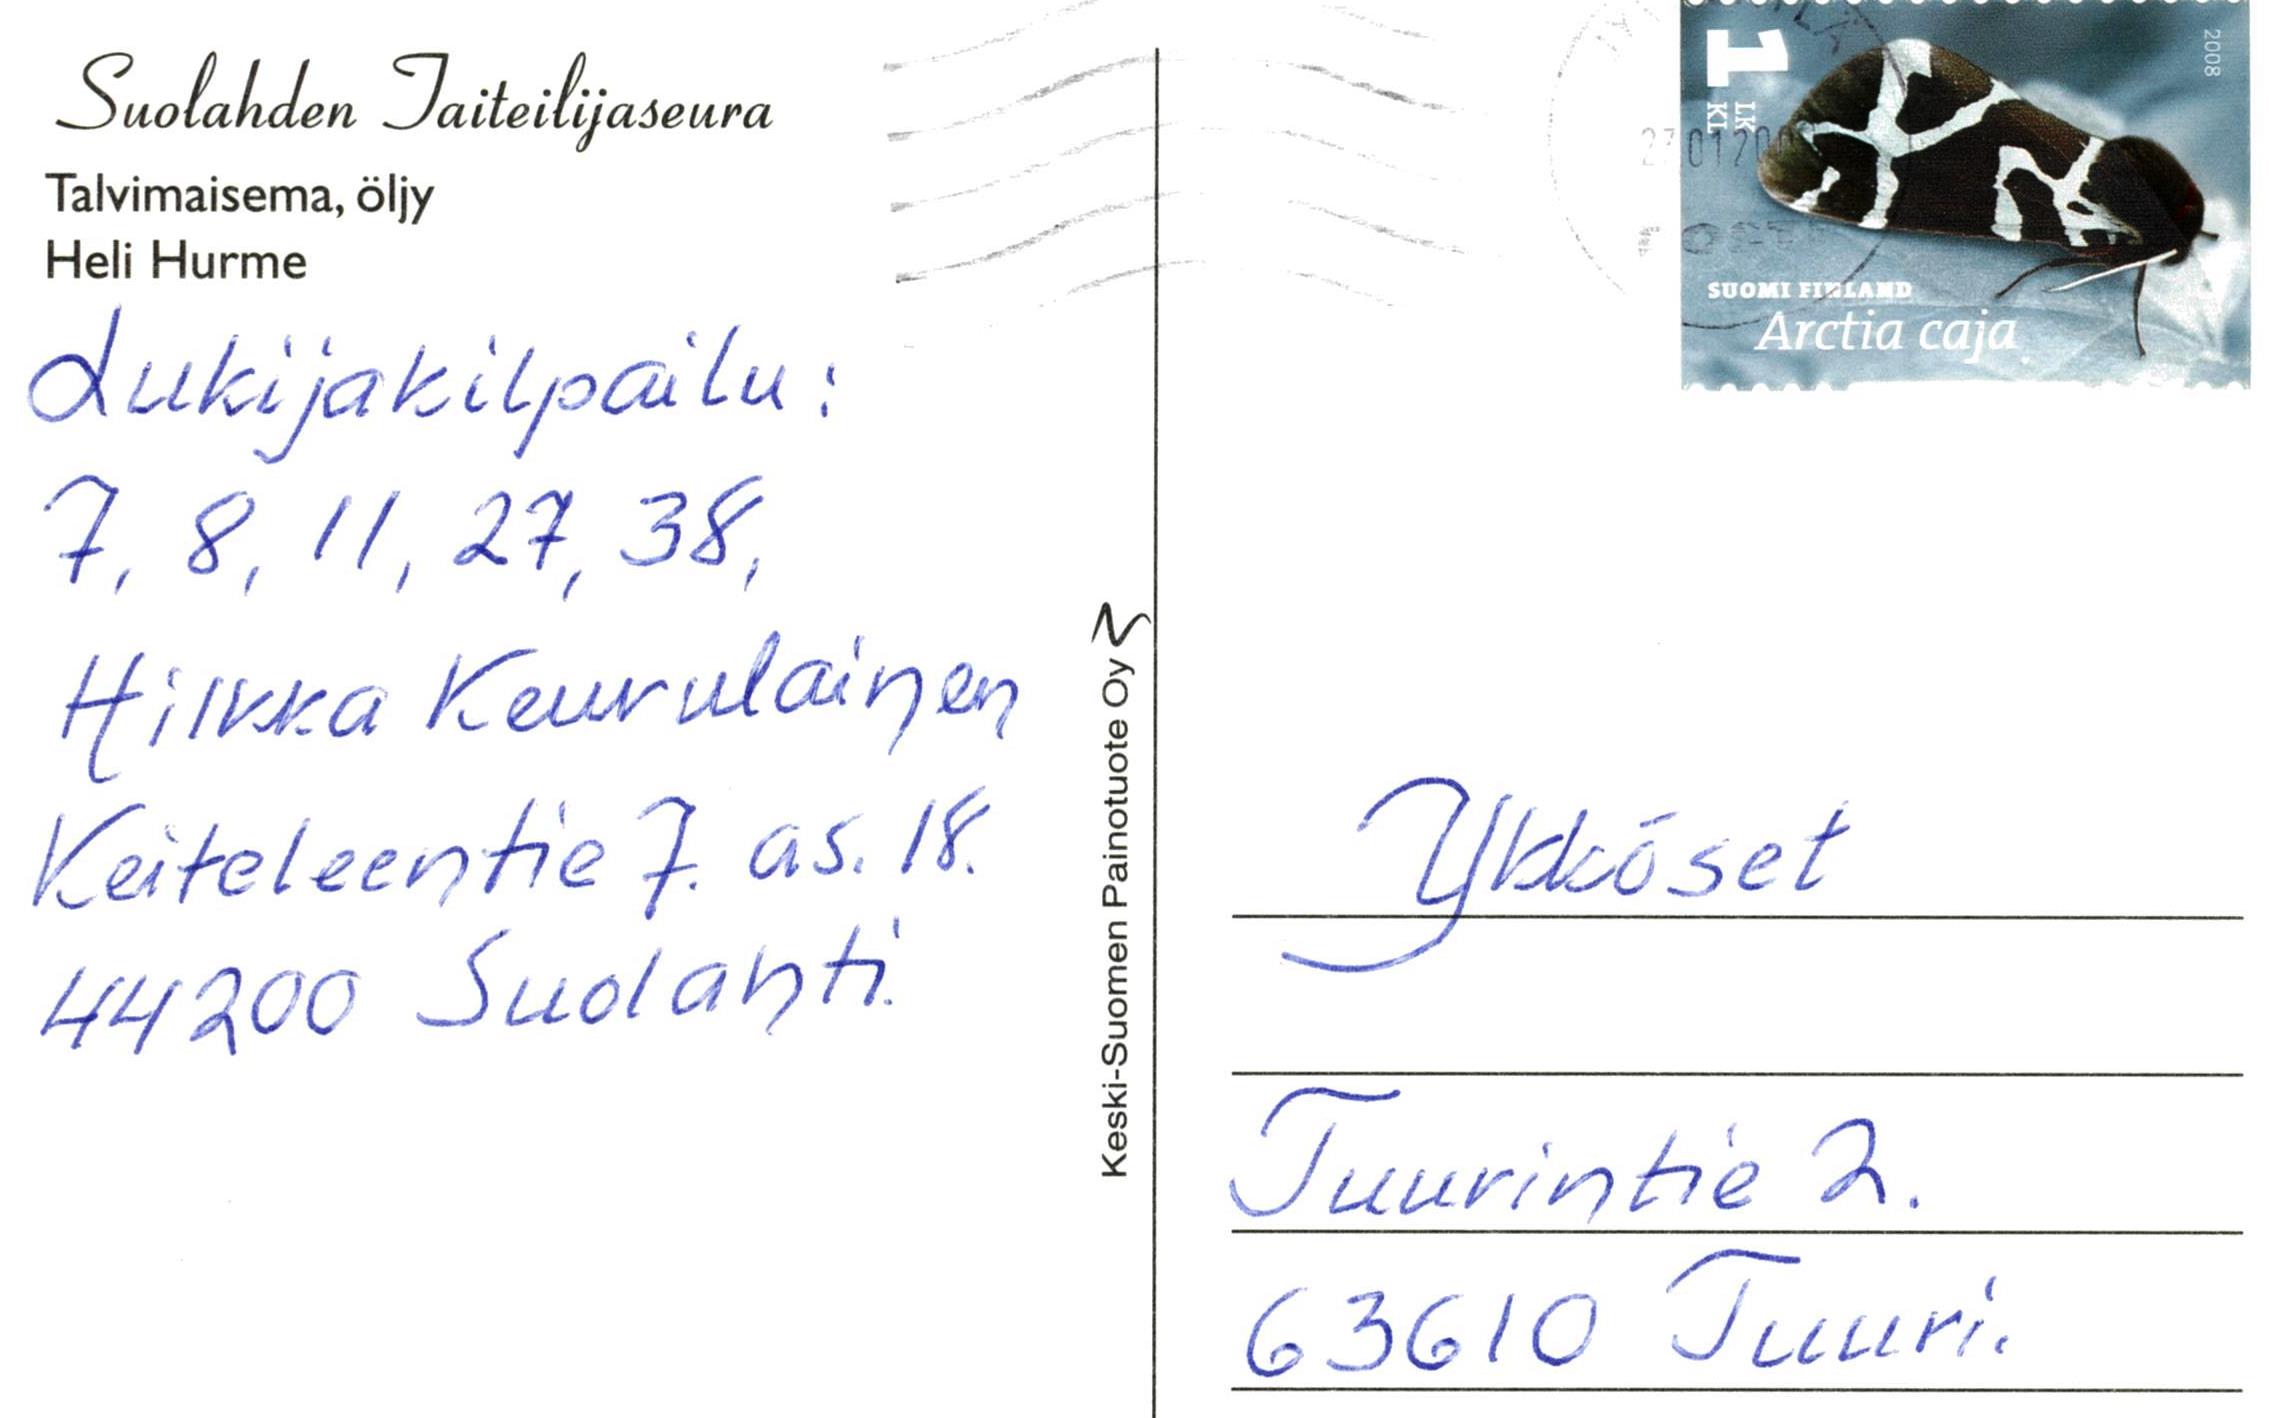 Suolahden Taiteilijaseura
Talvimaisema, öljy
Heli Hurme
Lukijakilpailu:
7, 8, 11, 27, 38,
Hilkka Keurulainen
Keiteleentie 7. as. 18.
44200 Suolahti.
Keski-Suomen Painotuote Oy
1
LK
KL
2008
SUOMI FINLAND
Arctia caja
Ykköset
Tuurintie 2.
63610 Tuuri.